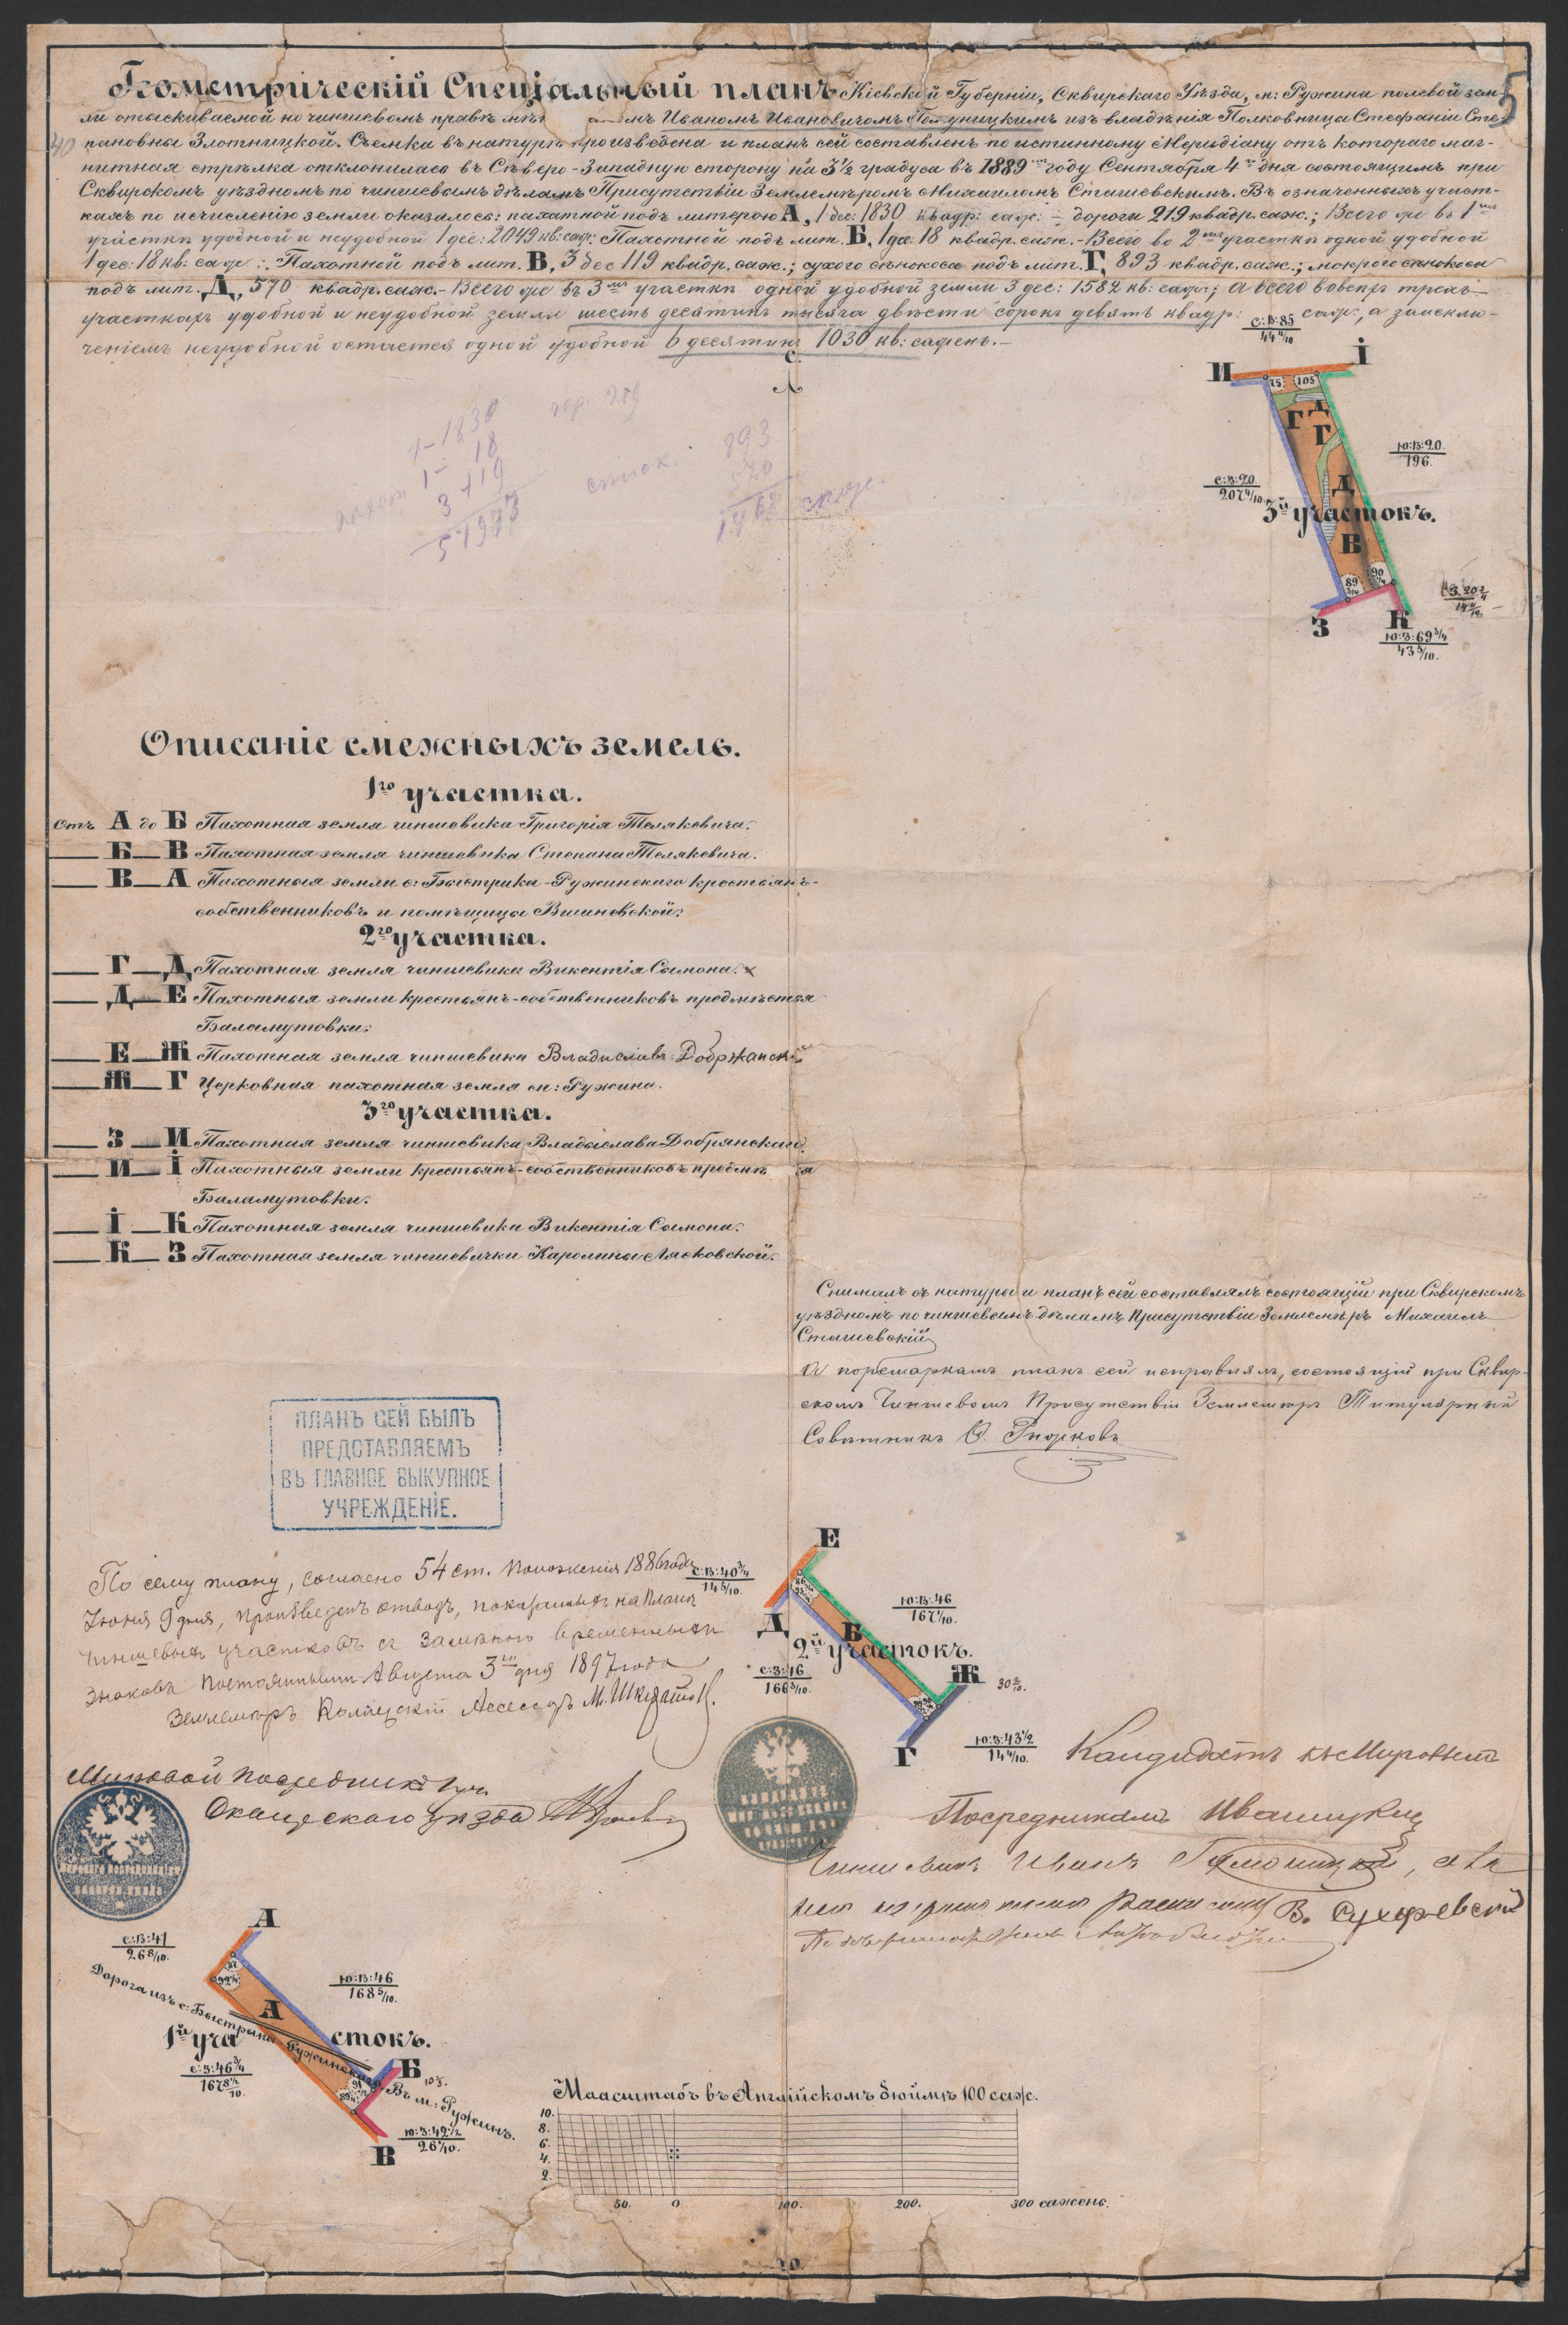 Геометрическій Спеціальный планъ Кіевской Губерніи, Сквирскаго Уѣзда, м: Ружина полевой зем-
5
ли отыскиваемой по чиншевомъ правѣ Иваномъ Ивановичомъ изъ владѣнія Полковница Стефаніи Сте-
40
пановны Злотницкой. Съемка въ натурѣ произведена и планъ сей составленъ по истинному Меридіану отъ котораго маг-
нитная стрѣлка отклонилась въ Сѣверо-Западную сторону на 3½ градуса въ 1889 году Сентября 4 дня состоящимъ при
Сквирскомъ уѣздномъ по чиншевымъ дѣламъ Присутствіи Землемѣромъ Михаиломъ Сташевскимъ. Въ означенныхъ участ-
кахъ по исчисленію земли оказалось: пахатной подъ литерою А, 1 дес: 1830 квадр: саж: - дороги 219 квадр. саж.; Всего же въ 1мъ
участкѣ удобной и неудобной 1 дес: 2049 кв: саж: Пахотной подъ лит. Б, 1 дес 18 квадр. саж. - Всего во 2мъ участкѣ одной удобной
1 дес: 18 кв: саж:. Пахотной подъ лит. В, 3 дес 119 квадр. саж.; сухого сѣнокоса подъ лит. Г, 893 квадр. саж.; мокрого сѣнокоса
подъ лит. Д, 570 квадр. саж. - Всего же въ 3мъ участкѣ одной удобной земли 3 дес: 1582 кв: саж:; а всего вовсехъ трехъ
участкахъ удобной и неудобной земли шесть десятинъ тысяча двѣсти сорокъ девять квадр: саж:, а заисклю-
ченіемъ неудобной остается одной удобной 6 десятинъ 1030 кв: сажень. -
С.
С:В:85
44 4/10
И І
75 105
Г Д
Г
Ю:В:20.
196.
С:З:20
207 4/10
Д
3й участокъ.
В
89 3/4
90 1/4
З К
Ю:З:69 3/4
43 5/10.
1-1830
1- 18
3 119
5 1973
893
570
Описаніе смежныхъ земель.
1го участка.
Отъ А до Б Пахотная земля чиншевика Григорія Телякевича.
Б В Пахотная земля чиншевика Степана Телякевича.
В А Пахотныя земли с: Быстрика-Ружинскаго крестьянъ-
собственниковъ и помѣщицы Вишневской.
2го участка.
Г Д Пахотная земля чиншевика Викентія Сымона. х
Д Е Пахотныя земли крестьянъ-собственниковъ предмѣстья
Баламутовки.
Е Ж Пахотная земля чиншевика Владислава Добржанск
Ж Г Церковная пахотная земля м: Ружина.
3го участка.
З И Пахотная земля чиншевика Владыслава Добрянскаго.
И І Пахотныя земли крестьянъ-собственниковъ предмѣ
Баламутовки.
І К Пахотная земля чиншевика Викентія Сымона.
К З Пахотная земля чиншевички Каролины Лясковской.
Снималъ съ натуры и планъ сей составлялъ состоящій при Сквирскомъ
уѣздномъ по чиншевымъ дѣламъ Присутствіи Землемѣръ Михаилъ
Сташевскій
планъ сей исправлялъ, состоящій при Сквир-
скомъ Чиншевомъ Присутствіи Землемѣръ Титулярный
Совѣтникъ
ПЛАНЪ СЕЙ БЫЛЪ
ПРЕДСТАВЛЯЕМЪ
ВЪ ГЛАВНОЕ ВЫКУПНОЕ
УЧРЕЖДЕНІЕ.
По сему плану, согласно 54 ст. Положенія 1886 года
Іюня 9 дня, произведенъ отводъ, показанныхъ на планѣ
чиншевыхъ участковъ съ заменою временныхъ
знаковъ постоянными Августа 3го дня 1897 года
Землемѣръ Коллежскій Ассесоръ
Мировой посредникъ
уѣзда
Е
С:В:40 3/4
14 5/10.
Ю:В:46
167 1/10.
Д
Б
2й участокъ.
Ж
С:З:46
166 5/10.
30 2/10.
Ю:З:43 1/2
14 4/10.
Г
Кандидатъ къ Мировымъ
Посредникамъ
Чиншевикъ Иванъ
В. Сухаревскій
А
С:В:41
26 8/10.
Ю:В:46
168 5/10.
Дорога изъ с: Быстрика-Ружинскаго Въ м: Ружинъ.
А
1й участокъ.
С:З:46 3/4
167 8½/10.
Б
Ю:З:42 1/2
26 1/10.
В
Маасштабъ въ Англійскомъ дюймѣ 100 саж.
10.
8.
6.
4.
2.
50. 0 100. 200. 300 сажень.
Ю.